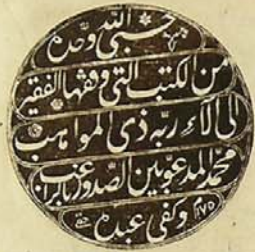 حسبي الله وحده
من الكتب التي وقفها الفقير
الى آلاء ربه ذى المواهب
محمد المدعو بين الصدور براغب
وكفى عبده